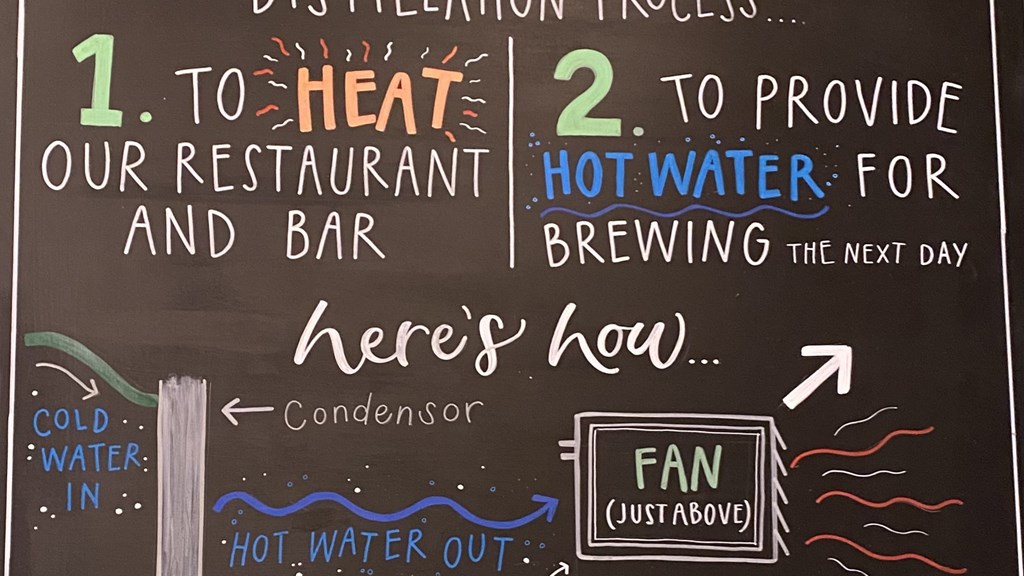 DISTILLATION PROCESS....
1. TO HEAT
OUR RESTAURANT
AND BAR
2. TO PROVIDE
HOT WATER FOR
BREWING THE NEXT DAY
here's how...
COLD
WATER
IN
Condensor
HOT WATER OUT
FAN
(JUST ABOVE)